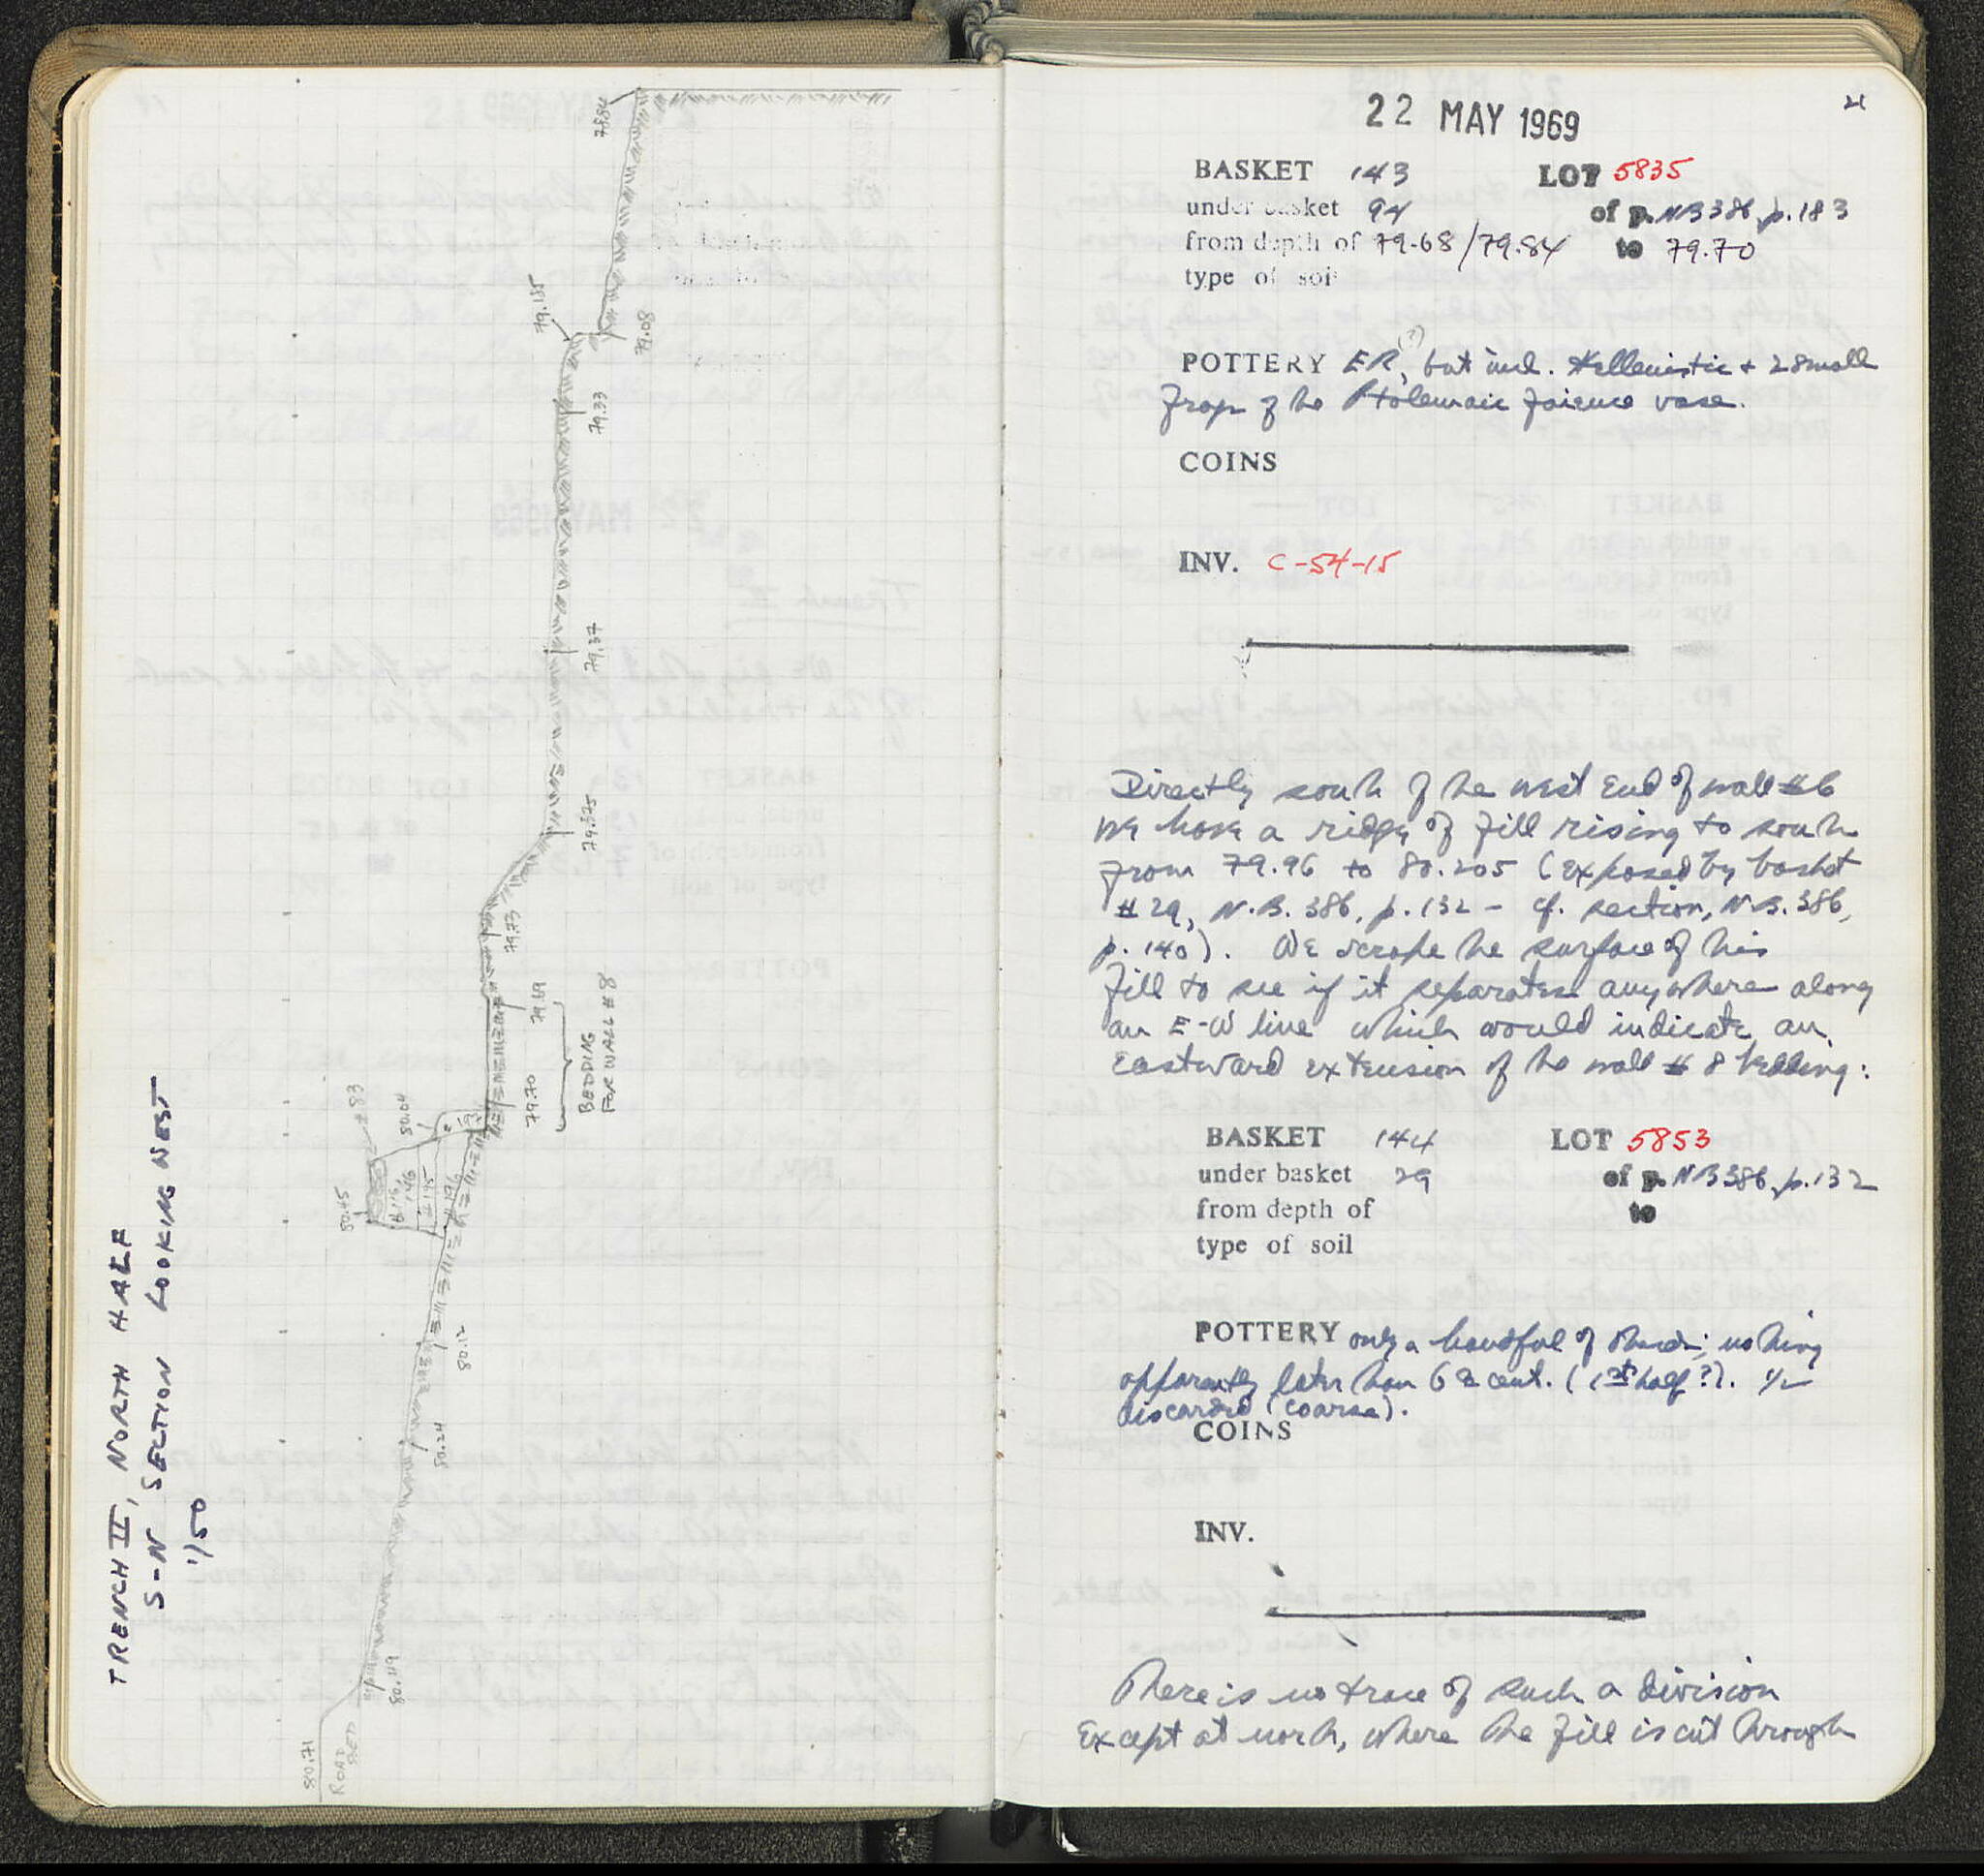 TRENCH II, NORTH HALF
S-N SECTION LOOKING WEST
1/50
78.84
79.135
79.08
79.33
79.37
79.525
79.73
79.69
79.70
BEDDING
FOR WALL #8
#83
80.04
80.45
80.12
80.24
80.49
80.71
ROAD
BED
21
22 MAY 1969
BASKET 143 LOT 5835
under basket 94 of p. NB 386, p. 183
from depth of 79.68/79.84 to 79.70
type of soil
POTTERY ER(?), but incl. Hellenistic + 2 small
frags of the Ptolemaic faience vase.
COINS
INV. C-54-15
Directly south of the west end of wall #6
we have a ridge of fill rising to south
from 79.96 to 80.205 (exposed by basket
#29, N.B. 386, p. 132 - cf. section, N.B. 386,
p. 140). We scrape the surface of this
fill to see if it separates anywhere along
an E-W line which would indicate an
eastward extension of the wall #8 bedding:
BASKET 144 LOT 5853
under basket 29 of p. NB 386, p. 132
from depth of to
type of soil
POTTERY only a handful of sherds; nothing
apparently later than 6th cent. (1st half?). 1/2
discarded (coarse).
COINS
INV.
There is no trace of such a division
except at north, where the fill is cut through